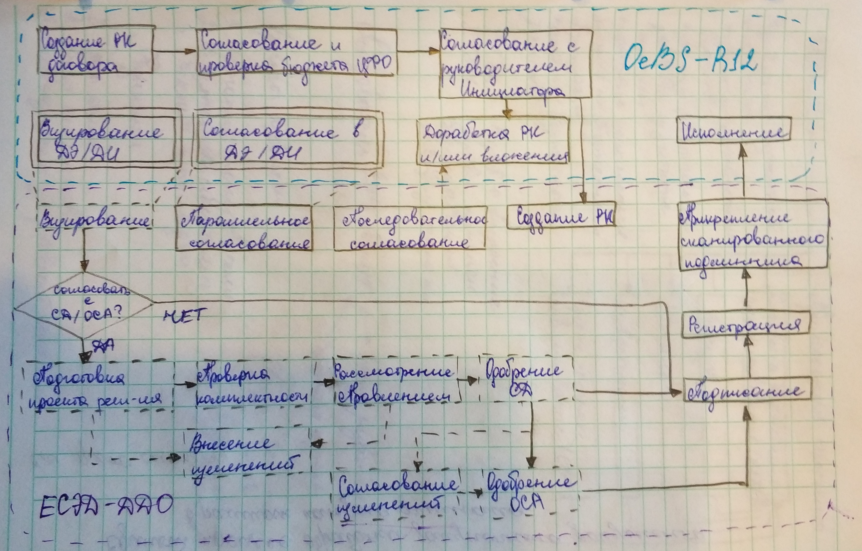 Создание РК
договора
Согласование и
проверка бюджета ЦФО
Согласование с
руководителем
Инициатора
OeBS-R12
Визирование
ДЭ/ДИ
Согласование в
ДЭ/ДИ
Доработка РК
и/или вложения
Исполнение
Визирование
Параллельное
согласование
Последовательное
согласование
Создание РК
Прикрепление
сканированного
подлинника
Согласовать
с
СД/ОСА?
НЕТ
ДА
Регистрация
Подготовка
проекта реш-ия
Проверка
комплектности
Рассмотрение
Правлением
Одобрение
СД
Подписание
Внесение
изменений
Согласование
изменений
Одобрение
ОСА
ЕСЭД-ДДО